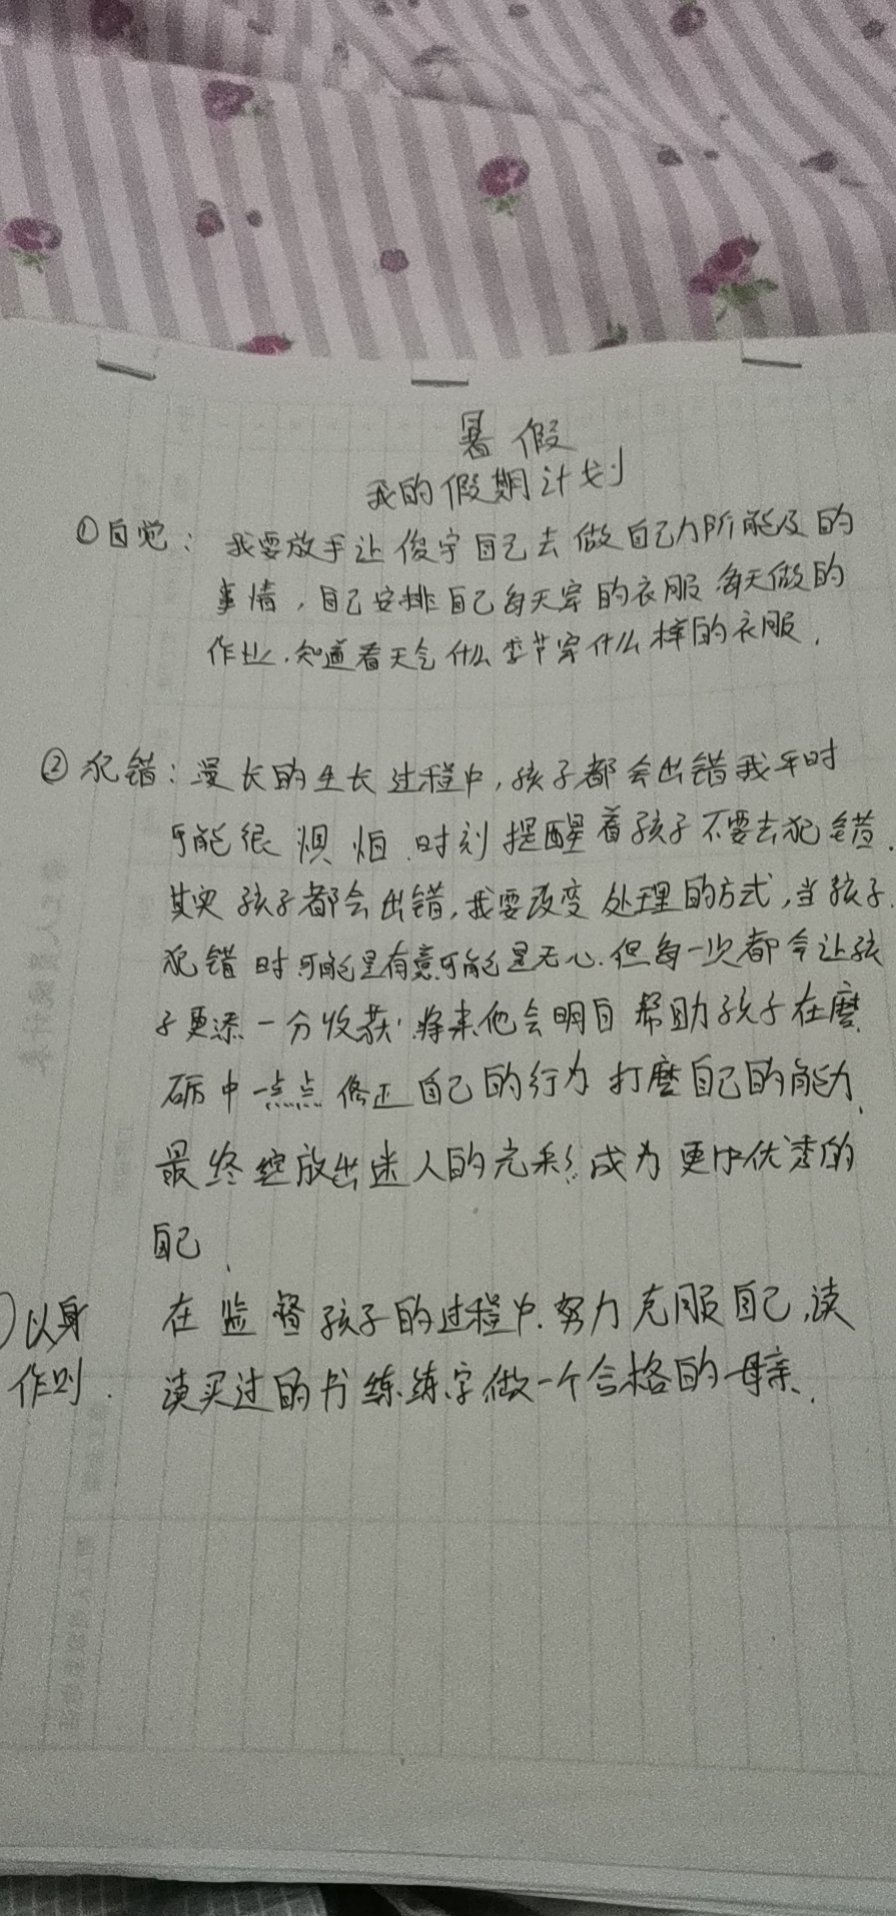 暑假
我的假期计划
①自觉：我要放手让俊宇自己去做自己力所能及的
事情，自己安排自己每天穿的衣服每天做的
作业.知道看天气什么季节穿什么样的衣服.
②犯错：漫长的生长过程中，孩子都会出错我平时
可能很惧怕.时刻提醒着孩子不要去犯错.
其实孩子都会出错，我要改变处理的方式，当孩子
犯错时可能是有意可能是无心.但每一次都会让孩
子更添一分收获.将来他会明白帮助孩子在磨
砺中一点点修正自己的行为打磨自己的能力.
最终绽放出迷人的光彩.成为更加优秀的
自己.
以身 在监督孩子的过程中.努力克服自己,读
作则. 读买过的书练练字做一个合格的母亲.